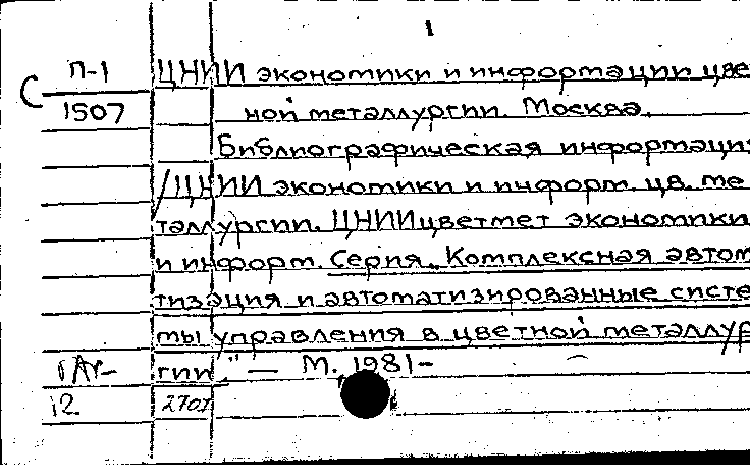 1
П-1 ЦНИИ экономики и информации цве
С 1507 ной металлургии. Москва.
Библиографическая информаци
/ЦНИИ экономики и информ. цв. ме
таллургии. ЦНИИцветмет экономики
и информ. Серия „Комплексная автом
тизация и автоматизированные систе
мы управления в цветной металлур
гии" — М., 1981-
12 2701